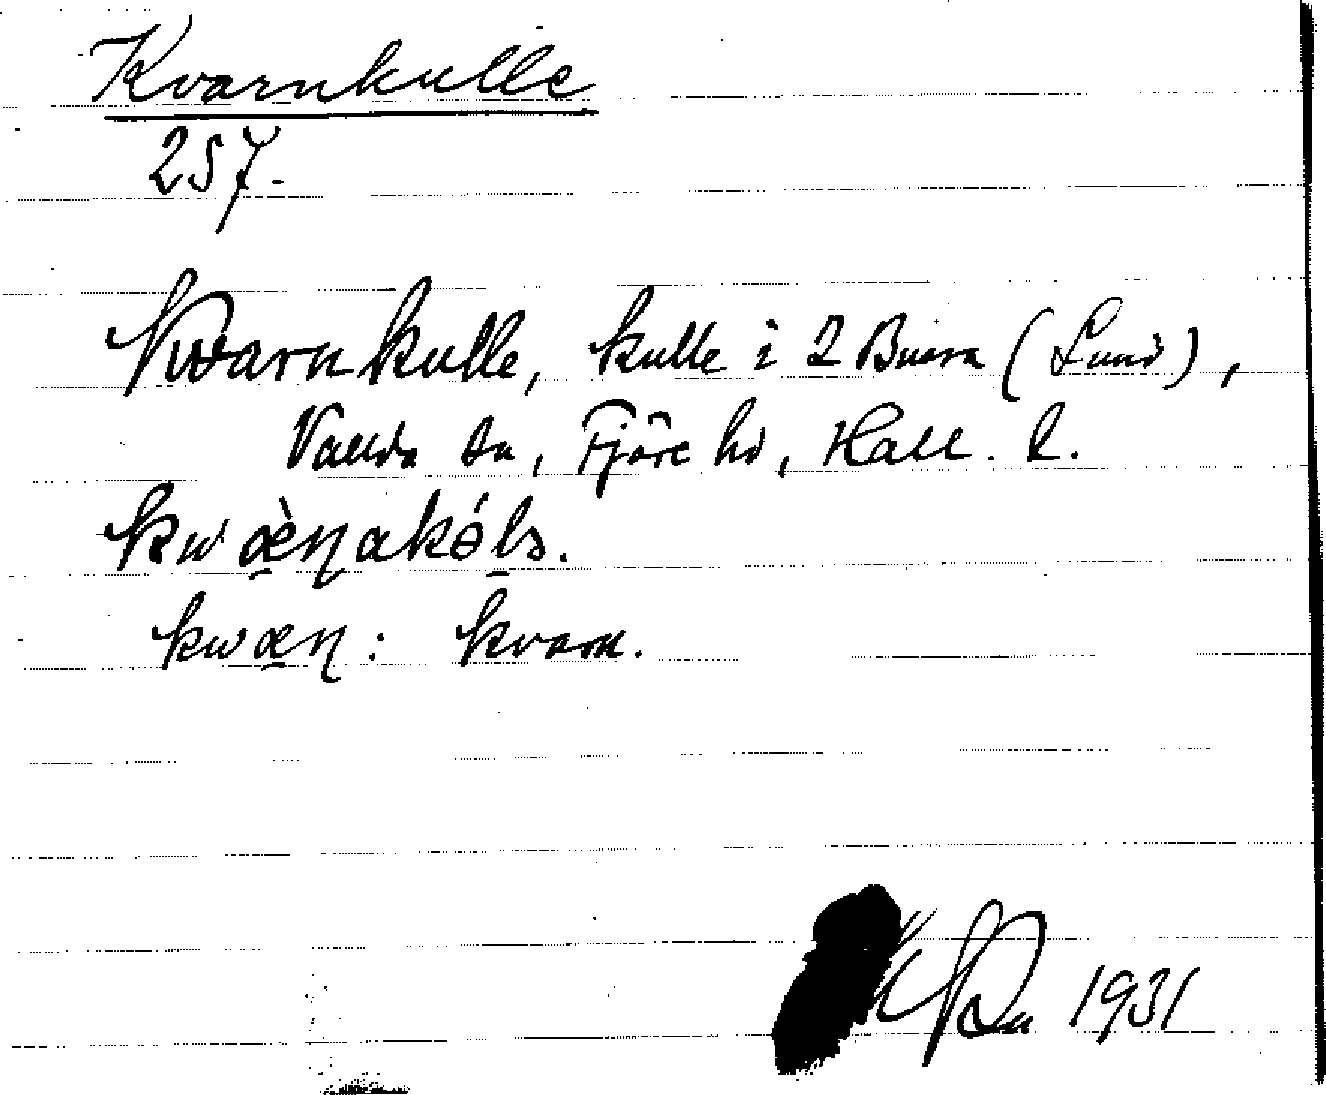 Kvarnkulle
257.
Kvarnkulle, kulle i 2 Buera (Lund),
Vallda sn, Fjäre hd, Hall. l.
kwæ̀ɳakóls.
kwæɳ: kvarn.
1931